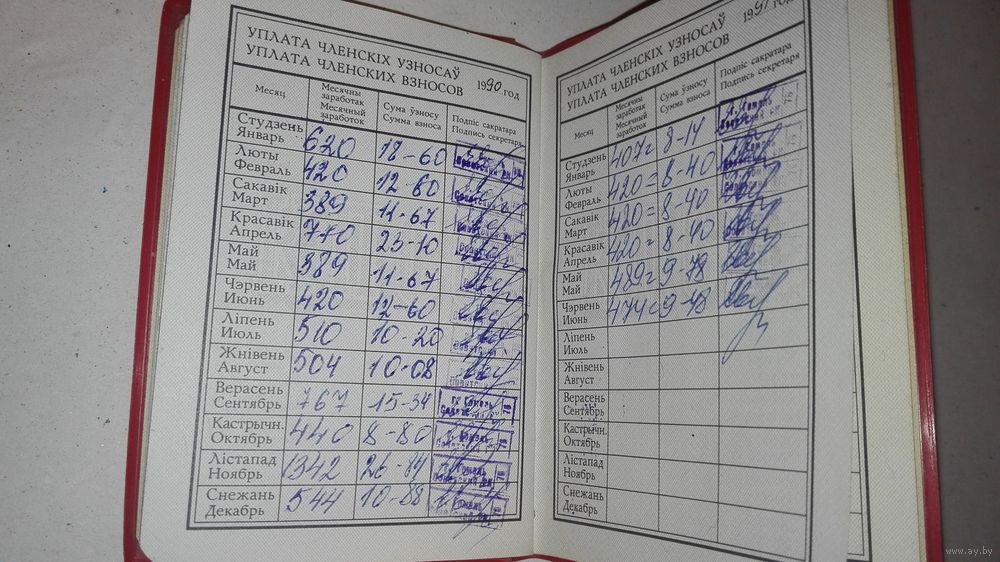 УПЛАТА ЧЛЕНСКІХ УЗНОСАЎ
УПЛАТА ЧЛЕНСКИХ ВЗНОСОВ 1990 год
Месяц Месячны заработак Месячный заработок Сума ўзносу Сумма взноса Подпіс сакратара Подпись секретаря
Студзень Январь 620 18-60
Люты Февраль 420 12-60
Сакавік Март 389 11-67
Красавік Апрель 770 23-10
Май Май 389 11-67
Чэрвень Июнь 420 12-60
Ліпень Июль 510 10-20
Жнівень Август 504 10-08
Верасень Сентябрь 767 15-34 г. Гомель
Кастрычн. Октябрь 440 8-80
Лістапад Ноябрь 1342 26-84 Гомель
Снежань Декабрь 544 10-88 Гомель
УПЛАТА ЧЛЕНСКІХ УЗНОСАЎ
УПЛАТА ЧЛЕНСКИХ ВЗНОСОВ 1991 год
Месяц Месячны заработак Месячный заработок Сума ўзносу Сумма взноса Подпіс сакратара Подпись секретаря
Студзень Январь 407= 8-14
Люты Февраль 420= 8-40
Сакавік Март 420= 8-40
Красавік Апрель 420= 8-40
Май Май 489= 9-78
Чэрвень Июнь
Ліпень Июль
Жнівень Август
Верасень Сентябрь
Кастрычн. Октябрь
Лістапад Ноябрь
Снежань Декабрь
www.ay.by